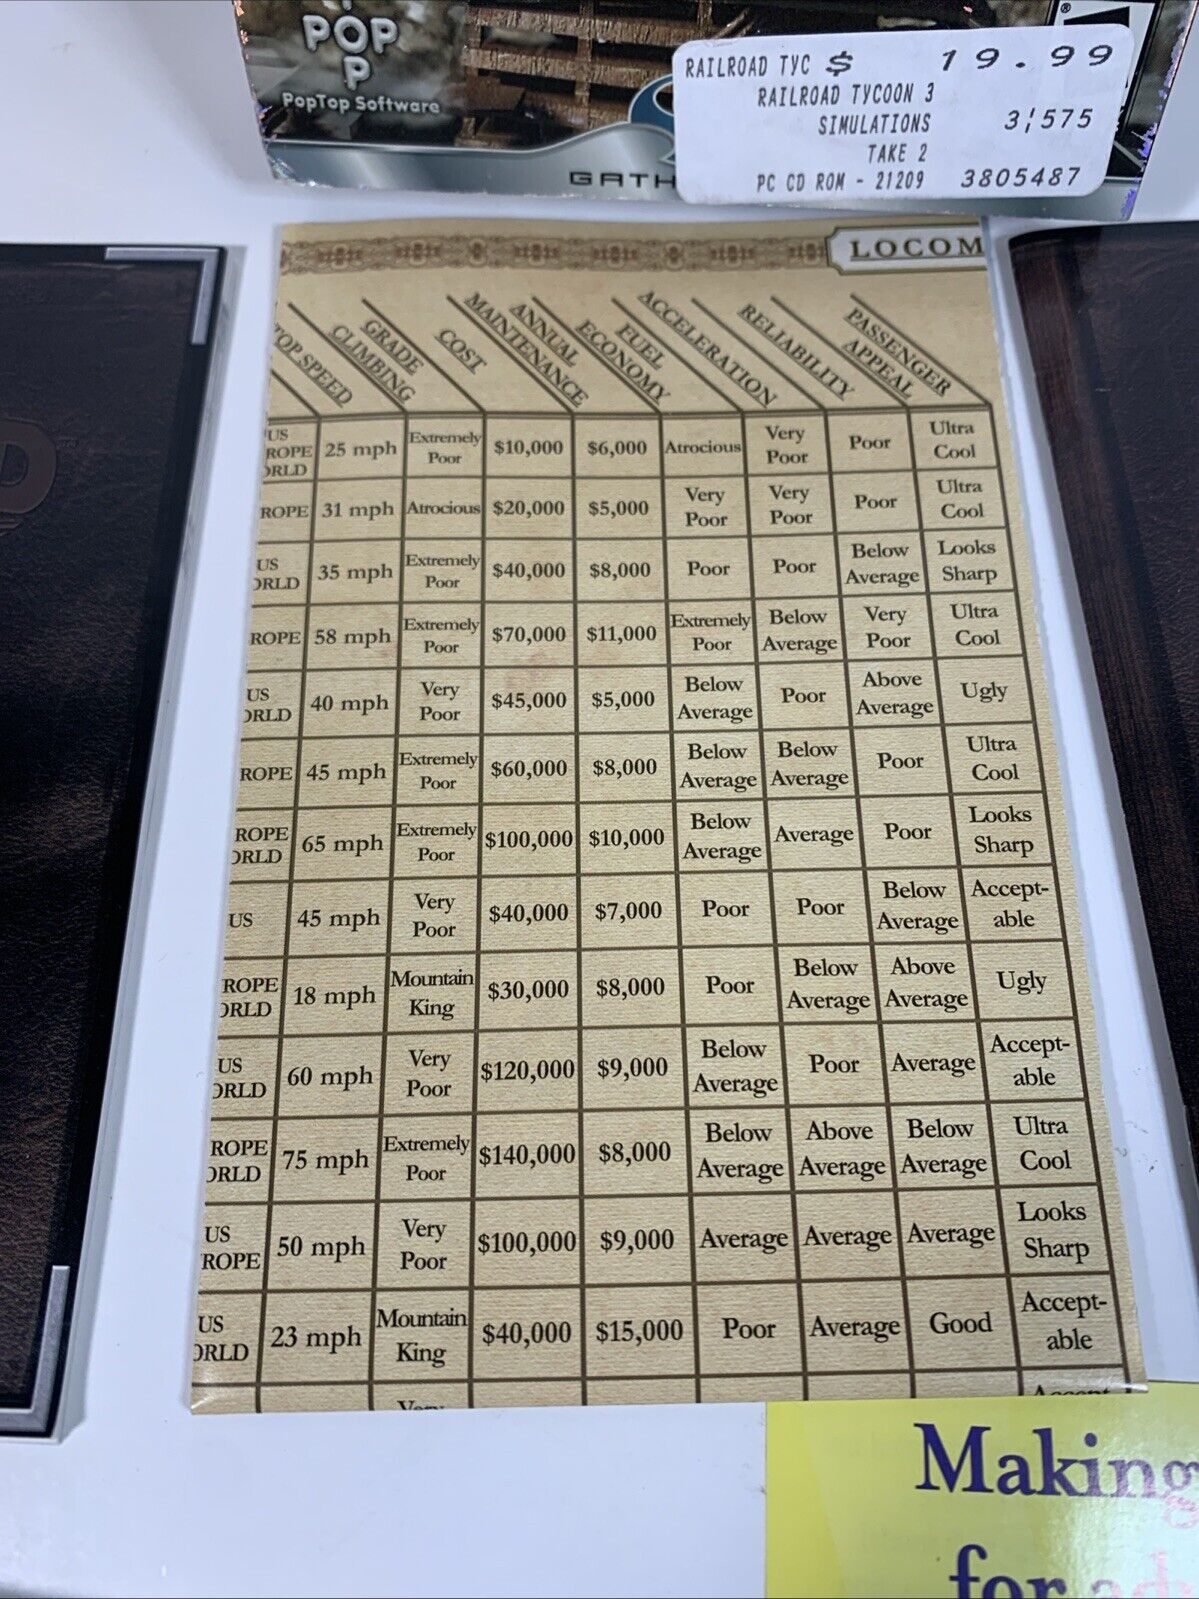 POP
P
PopTop Software
GATH
RAILROAD TYC $ 19.99
RAILROAD TYCOON 3
SIMULATIONS 3¦575
TAKE 2
PC CD ROM - 21209 3805487
®
LOCOM
TOP SPEED
GRADE CLIMBING
COST
ANNUAL MAINTENANCE
FUEL ECONOMY
ACCELERATION
RELIABILITY
PASSENGER APPEAL
US ROPE ORLD 25 mph Extremely Poor $10,000 $6,000 Atrocious Very Poor Poor Ultra Cool
ROPE 31 mph Atrocious $20,000 $5,000 Very Poor Very Poor Poor Ultra Cool
US ORLD 35 mph Extremely Poor $40,000 $8,000 Poor Poor Below Average Looks Sharp
ROPE 58 mph Extremely Poor $70,000 $11,000 Extremely Poor Below Average Very Poor Ultra Cool
US ORLD 40 mph Very Poor $45,000 $5,000 Below Average Poor Above Average Ugly
ROPE 45 mph Extremely Poor $60,000 $8,000 Below Average Below Average Poor Ultra Cool
ROPE ORLD 65 mph Extremely Poor $100,000 $10,000 Below Average Average Poor Looks Sharp
US 45 mph Very Poor $40,000 $7,000 Poor Poor Below Average Accept-able
ROPE ORLD 18 mph Mountain King $30,000 $8,000 Poor Below Average Above Average Ugly
US ORLD 60 mph Very Poor $120,000 $9,000 Below Average Poor Average Accept-able
ROPE ORLD 75 mph Extremely Poor $140,000 $8,000 Below Average Above Average Below Average Ultra Cool
US ROPE 50 mph Very Poor $100,000 $9,000 Average Average Average Looks Sharp
US ORLD 23 mph Mountain King $40,000 $15,000 Poor Average Good Accept-able
Very Accept
D
Making
for adv